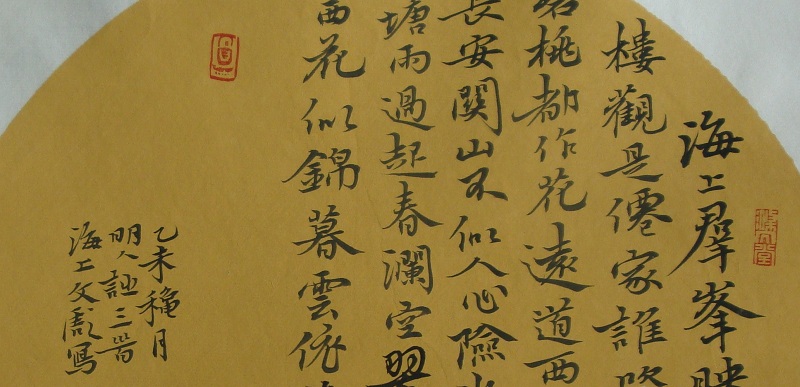 海上群峯映
樓觀是僊家誰
桃都作花遠道西
長安關山不似人心險
塘雨過起春瀾空翠
西花似錦暮雲依
乙未穐月
明人詠三首
海上文彪寫